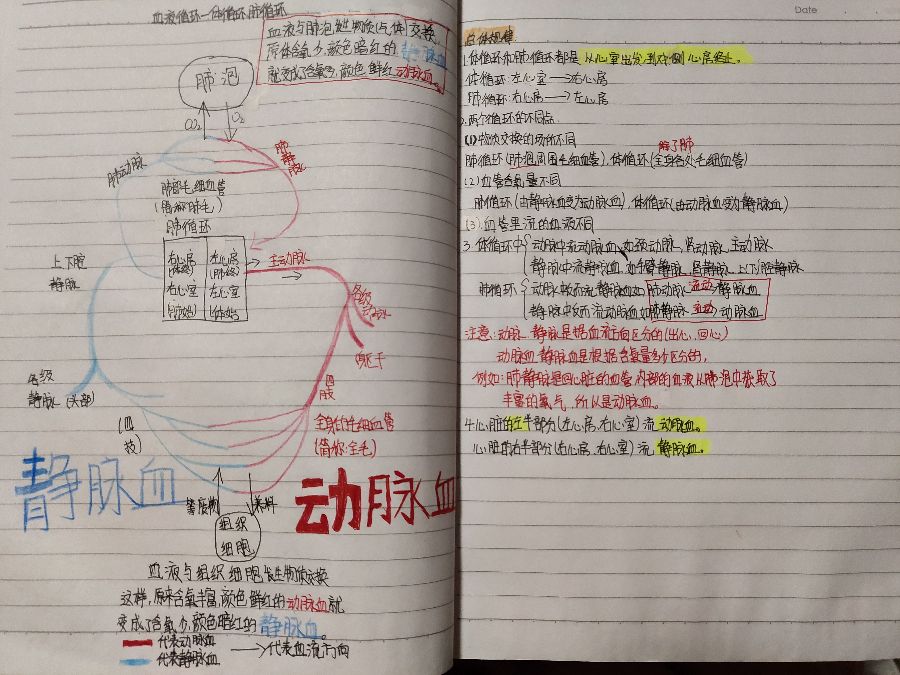 血液循环—体循环肺循环
血液与肺泡发生物质(气体)交换,
原来含氧少,颜色暗红的静脉血
就变成了含氧多,颜色鲜红动脉血。
肺泡
CO₂
O₂
肺动脉
肺静脉
肺部毛细血管
(简称肺毛)
肺循环
上下腔
静脉
右心房
左心房
右心室
左心室
主动脉
各级
动脉
躯干
四肢
各级
静脉(头部)
(四肢)
全身的毛细血管
(简称:全毛)
静脉血
动脉血
养料
组织
细胞
血液与组织细胞发生物质交换
这样,原来含氧丰富,颜色鲜红的动脉血就
变成了含氧少,颜色暗红的静脉血。
代表动脉血
代表静脉血
→代表血流方向
Date
总体规律
1.体循环和肺循环都是从心室出发到对侧心房终止。
体循环:左心室→右心房
肺循环:右心房→左心房
2.两个循环的不同点
(1)物质交换的场所不同
除了肺
肺循环(肺泡周围毛细血管),体循环(全身各处毛细血管)
(2)血管含氧量不同
肺循环(由静脉血变为动脉血),体循环(由动脉血变为静脉血)
(3)血管里流的血液不同
3.体循环中 动脉中流动脉血,如颈动脉、肾动脉、主动脉
静脉中流静脉血,如肾静脉、上下腔静脉
肺循环 动脉反而流静脉血如肺动脉 流动→静脉血
静脉中反而流动脉血如肺静脉 流动→动脉血
注意:动脉、静脉是根据血流方向区分的(出心,回心)
动脉血、静脉血是根据含氧量多少区分的,
例如:肺静脉是回心脏的血管,内部的血液从肺泡中获取了
丰富的氧气,所以是动脉血。
4.心脏的左半部分(左心房、右心室)流动脉血。
心脏的右半部分(右心房、右心室)流静脉血。